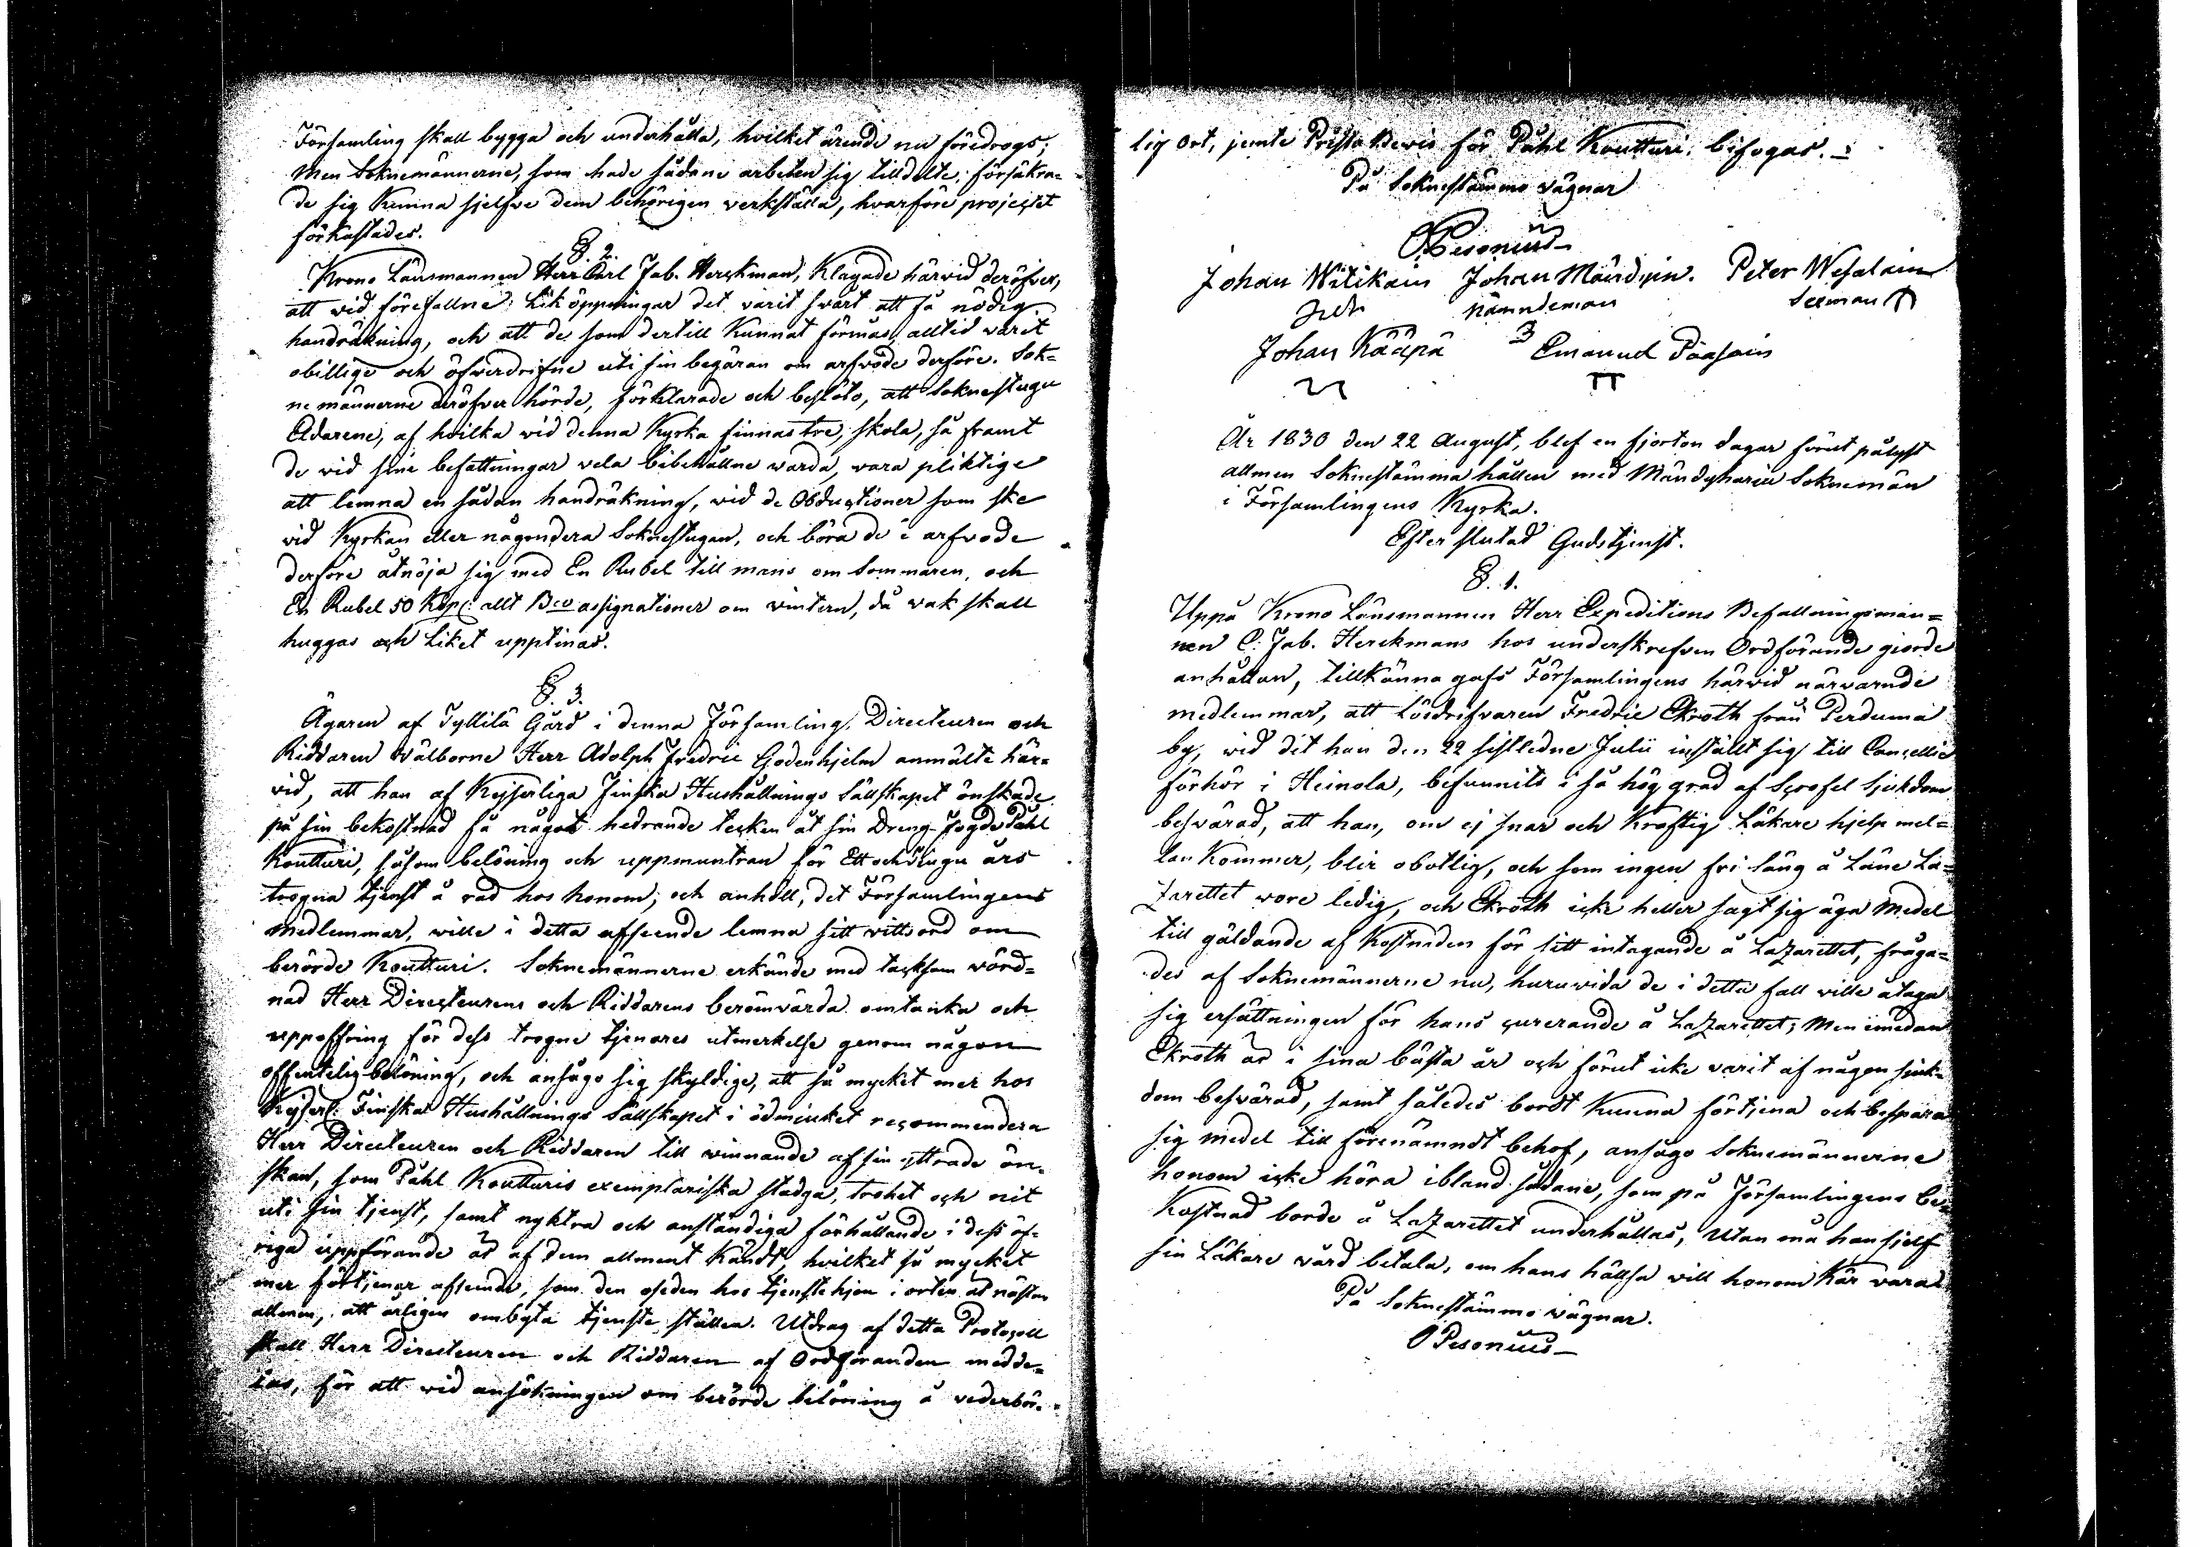 Församling skall bygga och underhålla, hvilket ärende nu föredrogs;
Men Soknemännerne, som hade sådane arbeten sig tilldelte, försäkra-
de sig kunna sjelfve dem behörigen verkställa, hvarföre projectet
förkastades.
§. 2.
Krono Länsmannen Herr Carl Jab. Herckman, klagade härvid deröfver,
att wid förefallne Liköppningar det varit svårt att få nödig
handräkning, och att de som dertill kunnat förmås, alltid varit
obillige och öfverdrifne uti sin begäran om arfvode derföre. Sok-
nemännerne deröfver hörde, förklarade och beslöto, att Soknestugu
Adarene, af hvilka wid denna Kyrka finnas tre, skola, så framt
de vid sine befattningar vela bibehållne warda, vara pliktige
att lemna en sådan handräkning, wid de Obductioner som ske
vid Kyrkan eller någondera Soknestugan, och böra de i arfvode
derföre åtnöja sig med En Rubel till mans om Sommaren, och
En Rubel 50 Kop: allt Bco assignationer om vintern, då vak skall
huggas och Liket upptinas.
§. 3.
Ägaren af Tyllilä Gård i denna Församling, Directeuren och
Riddaren Wälborne Herr Adolph Fredric Godenhjelm anmälte här-
vid, att han af Kejserliga Finska Hushållnings Sällskapet önskade
på sin bekostnad få något hedrande tecken åt sin Dreng Fogde Påhl
Koutturi, såsom belöning och uppmuntran för Ett och tjugu års
trogna tjenst å rad hos honom; och anhöll, det Församlingens
Medlemmar, wille i detta afseende lemna sitt vittsord om
berörde Koutturi. Soknemännerne erkände med tacksam vörd-
nad Herr Directeurens och Riddarens berömvärda omtanka och
uppoffring för dess trogne tjenares utmerkelse genom någon
offentelig belöning, och ansågo sig skyldige, att så mycket mer hos
Kejserl: Finska Hushållnings Sällskapet i ödmjukhet recommendera
Herr Directeuren och Riddaren till vinnande af sin yttrade ön-
skan, som Påhl Koutturis exemplariska stadga, trohet och nit
uti sin tjenst, samt nyktra och anständiga förhållande i dess öf-
riga uppförande är af dem allment kändt, hvilket så mycket
mer förtjenar afseende, som den oseden hos tjenstehjon i orten är nästan
allmen, att årligen ombyta tjenste ställen. Utdrag af detta Protocoll
skall Herr Directeuren och Riddaren af Ordföranden medde-
las, för att wid ansökningen om berörde belöning å vederbör-
lig ort, jemte Prästa Bevis för Påhl Koutturi, bifogas.
På Soknestämmo vägnar
O Pesonius
Johan Witikain Johan Mänd... Peter Wesalain
Nämndeman Sexman
Johan Kääpä Emanuel Pöasain
År 1830 den 22 August, blef en fjorton dagar förut pålyst
allmen Soknestämma hållen med Mändyharju Soknemän
i Församlingens Kyrka.
Efter slutad Gudstjenst.
§. 1.
Uppå Krono Länsmannen Herr Expeditions Befallningsman-
nen C. Jab. Herckmans hos underskrefven Ordförande gjorde
anhållan, tillkänna gafs Församlingens härvid närvarande
medlemmar, att Lösdrifvaren Fredric Ekroth från Perduma
by, vid det han den 22 sistledne Julii inställt sig till Cancellie
förhör i Heinola, befunnits i så hög grad af Scrofel sjukdom
besvärad, att han, om ej snar och kraftig Läkare hjelp mel-
lan kommer, blir obotlig, och som ingen fri säng å Läne La-
zarettet wore ledig, och Ekroth icke heller sagt sig äga Medel
till gäldande af kostnaden för sitt intagande å Lazarettet, fråga-
des af Soknemännerne nu, huruvida de i detta fall ville åtaga
sig ersättningen för hans curerande å Lazarettet; Men emedan
Ekroth är i sina bästa år och förut icke varit af någon sjuk-
dom besvärad, samt således bordt kunna förtjena och bespara
sig medel till förenämndt behof, ansågo Soknemännerne
honom icke höra ibland sådane, som på Församlingens be-
kostnad borde å Lazarettet underhållas, Utan må han sjelf
sin Läkare vård betala, om hans hälsa will honom kär vara.
På Soknestämmo vägnar.
O Pesonius